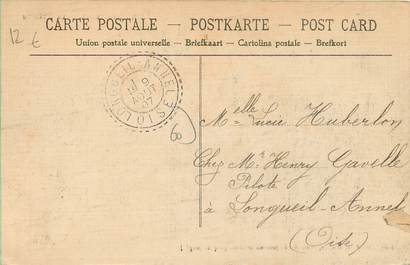 12 €
CARTE POSTALE - POSTKARTE - POST CARD
Union postale universelle - Briefkaart - Cartolina postale - Brefkort
LONGUEIL-ANNEL
9
AOUT
07
OISE
60
Melle Lucie Huberlon
Chez Mr Henry Gavelle
Pilote
à Longueil-Annel
(Oise)